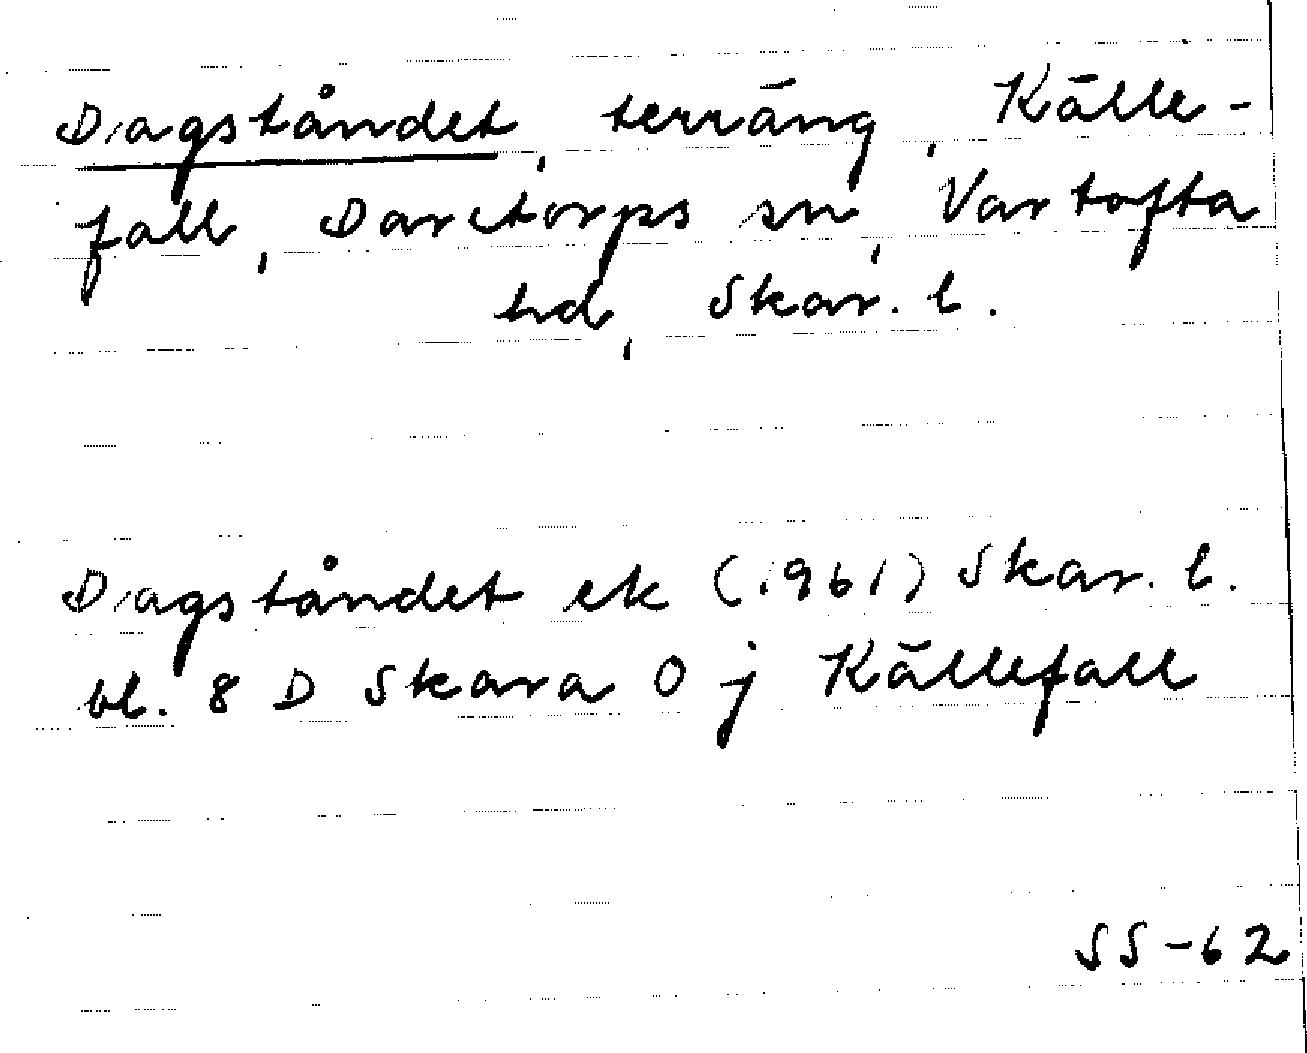 Dagståndet, terräng, Källe-
fall, Daretorps sn, Vartofta
hd, Skar. l.
Dagståndet ek (1961) Skar. l.
bl. 8 D Skara 0 j Källefall
SS-62